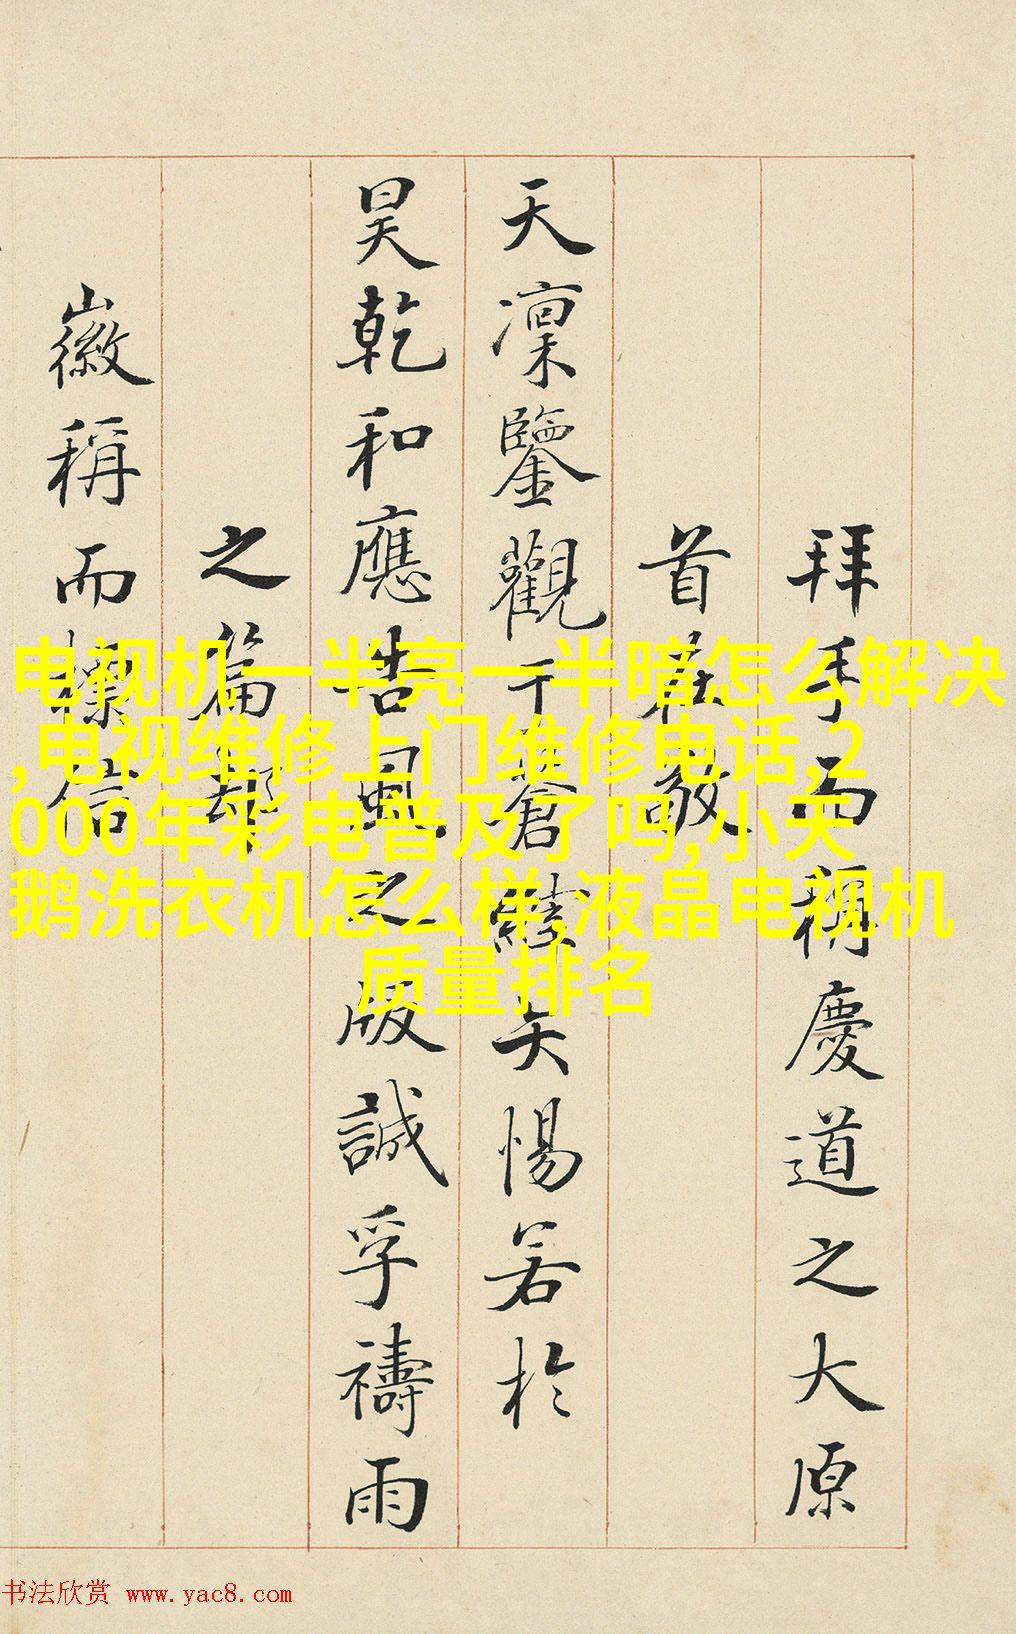 拜手而稱慶道之大原
首在敬
天凜鑒觀于蒼矢惕若於
昊乾和應告風之版誠孚禱雨
之篇
徽稱而信
电视机一半亮一半暗怎么解决
,电视维修上门维修电话,2
000年彩电普及了吗,小天
鹅洗衣机怎么样,液晶电视机
质量排名
书法欣赏 www.yac8.com